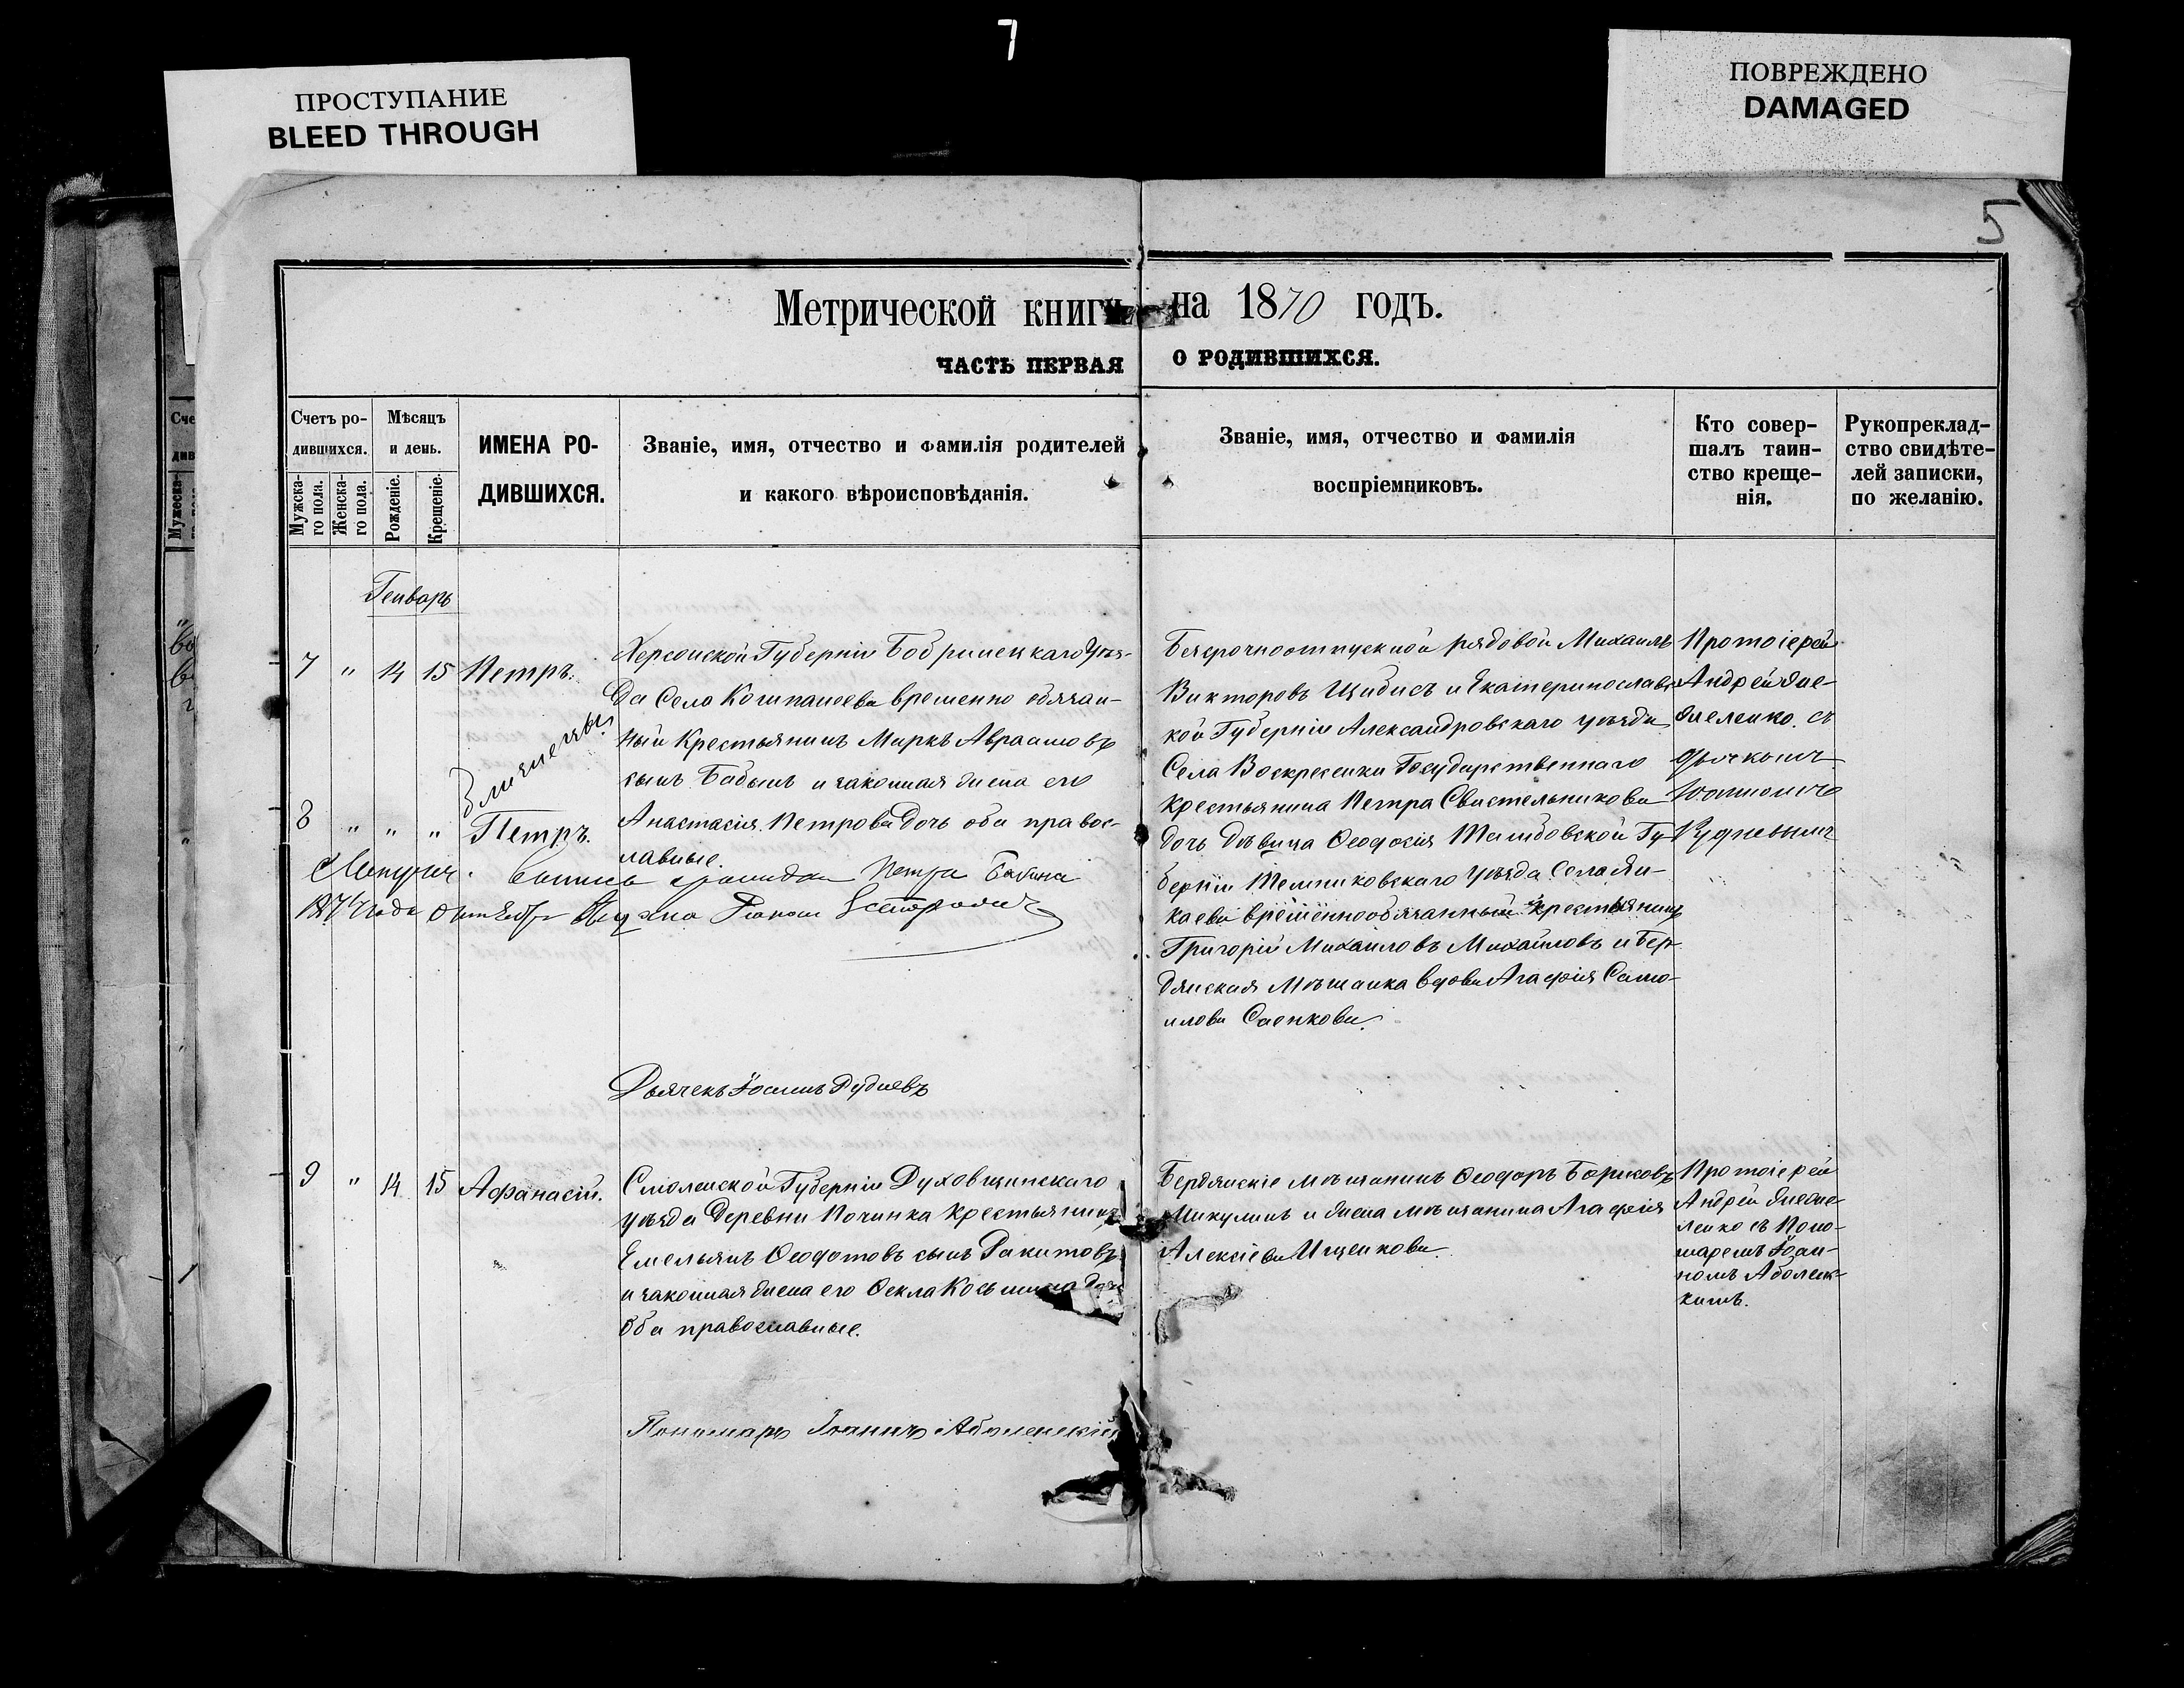 7
ПРОСТУПАНИЕ
BLEED THROUGH
ПОВРЕЖДЕНО
DAMAGED
5
Метрической книги на 1870 годъ.
ЧАСТЬ ПЕРВАЯ О РОДИВШИХСЯ.
Счетъ родившихся.
Мужскаго пола.
Женскаго пола.
Мѣсяцъ и день.
Рожденіе.
Крещеніе.
ИМЕНА РО-
ДИВШИХСЯ.
Званіе, имя, отчество и фамилія родителей
и какого вѣроисповѣданія.
Званіе, имя, отчество и фамилія
воспріемниковъ.
Кто совер-
шалъ таин-
ство креще-
нія.
Рукопреклад-
ство свидѣте-
лей записки,
по желанію.
Генварь
7 " 14 15 Петръ.
Близнецы
8 " " " Петръ.
Херсонской Губерніи Бобринецкаго Уѣз-
да Села Компанеева временно обязан-
ный Крестьянинъ Маркъ Авраамовъ
сынъ Бабынъ и законная жена его
Анастасія Петрова дочь оба правос-
лавные.
Петра
1871 года
Безсрочноотпускной рядовой Михаилъ
Викторовъ Цибисъ и Екатеринославс-
кой Губерніи Александровскаго уѣзда
Села Воскресенки Государственнаго
крестьянина Петра Свистельникова
дочь дѣвица Ѳеодосія Тамбовской Гу-
берніи Темниковскаго Уѣзда Села
каева временнообязанный крестьянинъ
Григорій Михаиловъ Михайловъ и Бер-
дянская мѣщанка вдова Агафія Само-
илова Саенкова.
Протоіерей
Андрей
съ
дьячкомъ
Іоанномъ
Рудневымъ
Дьячекъ Іоаннъ Рудневъ
9 " 14 15 Аѳанасій.
Смоленской Губерніи Духовщинскаго
уѣзда Деревни Починка крестьянинъ
Емельянъ Ѳеодотовъ сынъ Ракитовъ
и законная жена его Ѳекла Косьмина дочь
оба православные.
Бердянскіе мѣщанинъ Ѳеодоръ Борисовъ
Микулинъ и жена мѣщанина Агафія
Алексіева Ищенкова
Протоіерей
Андрей
съ Поно-
маремъ Іоан-
номъ Аболенс-
кимъ.
Пономарь Іоаннъ Аболенскій